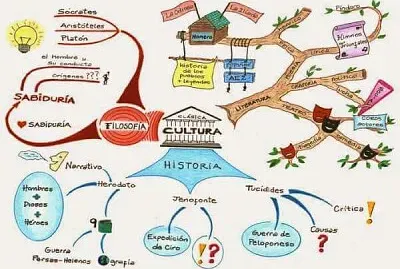 Sócrates
Aristóteles
Platón
el Hombre y
su conducta
orígenes ???
SABIDURÍA
SABIDURÍA
FILOSOFÍA
CLÁSICA
CULTURA
HISTORIA
La Odisea
La Ilíada
Homero
Historia
de los
pueblos
+ leyendas
Épica
Lírica
Píndaro
Himnos
Triunfales
ORATORIA
POLÍTICO
LITERATURA
TEATRO
Tragedia
Comedia
COROS
actores
Narrativo
Heródoto
Hombres
+
Dioses
+
Héroes
9
Guerra
Persas-Helenos
grafía
Jenofonte
Expedición
de Ciro
!?
Tucídides
Guerra de
Peloponeso
Crítica !
Causas
?